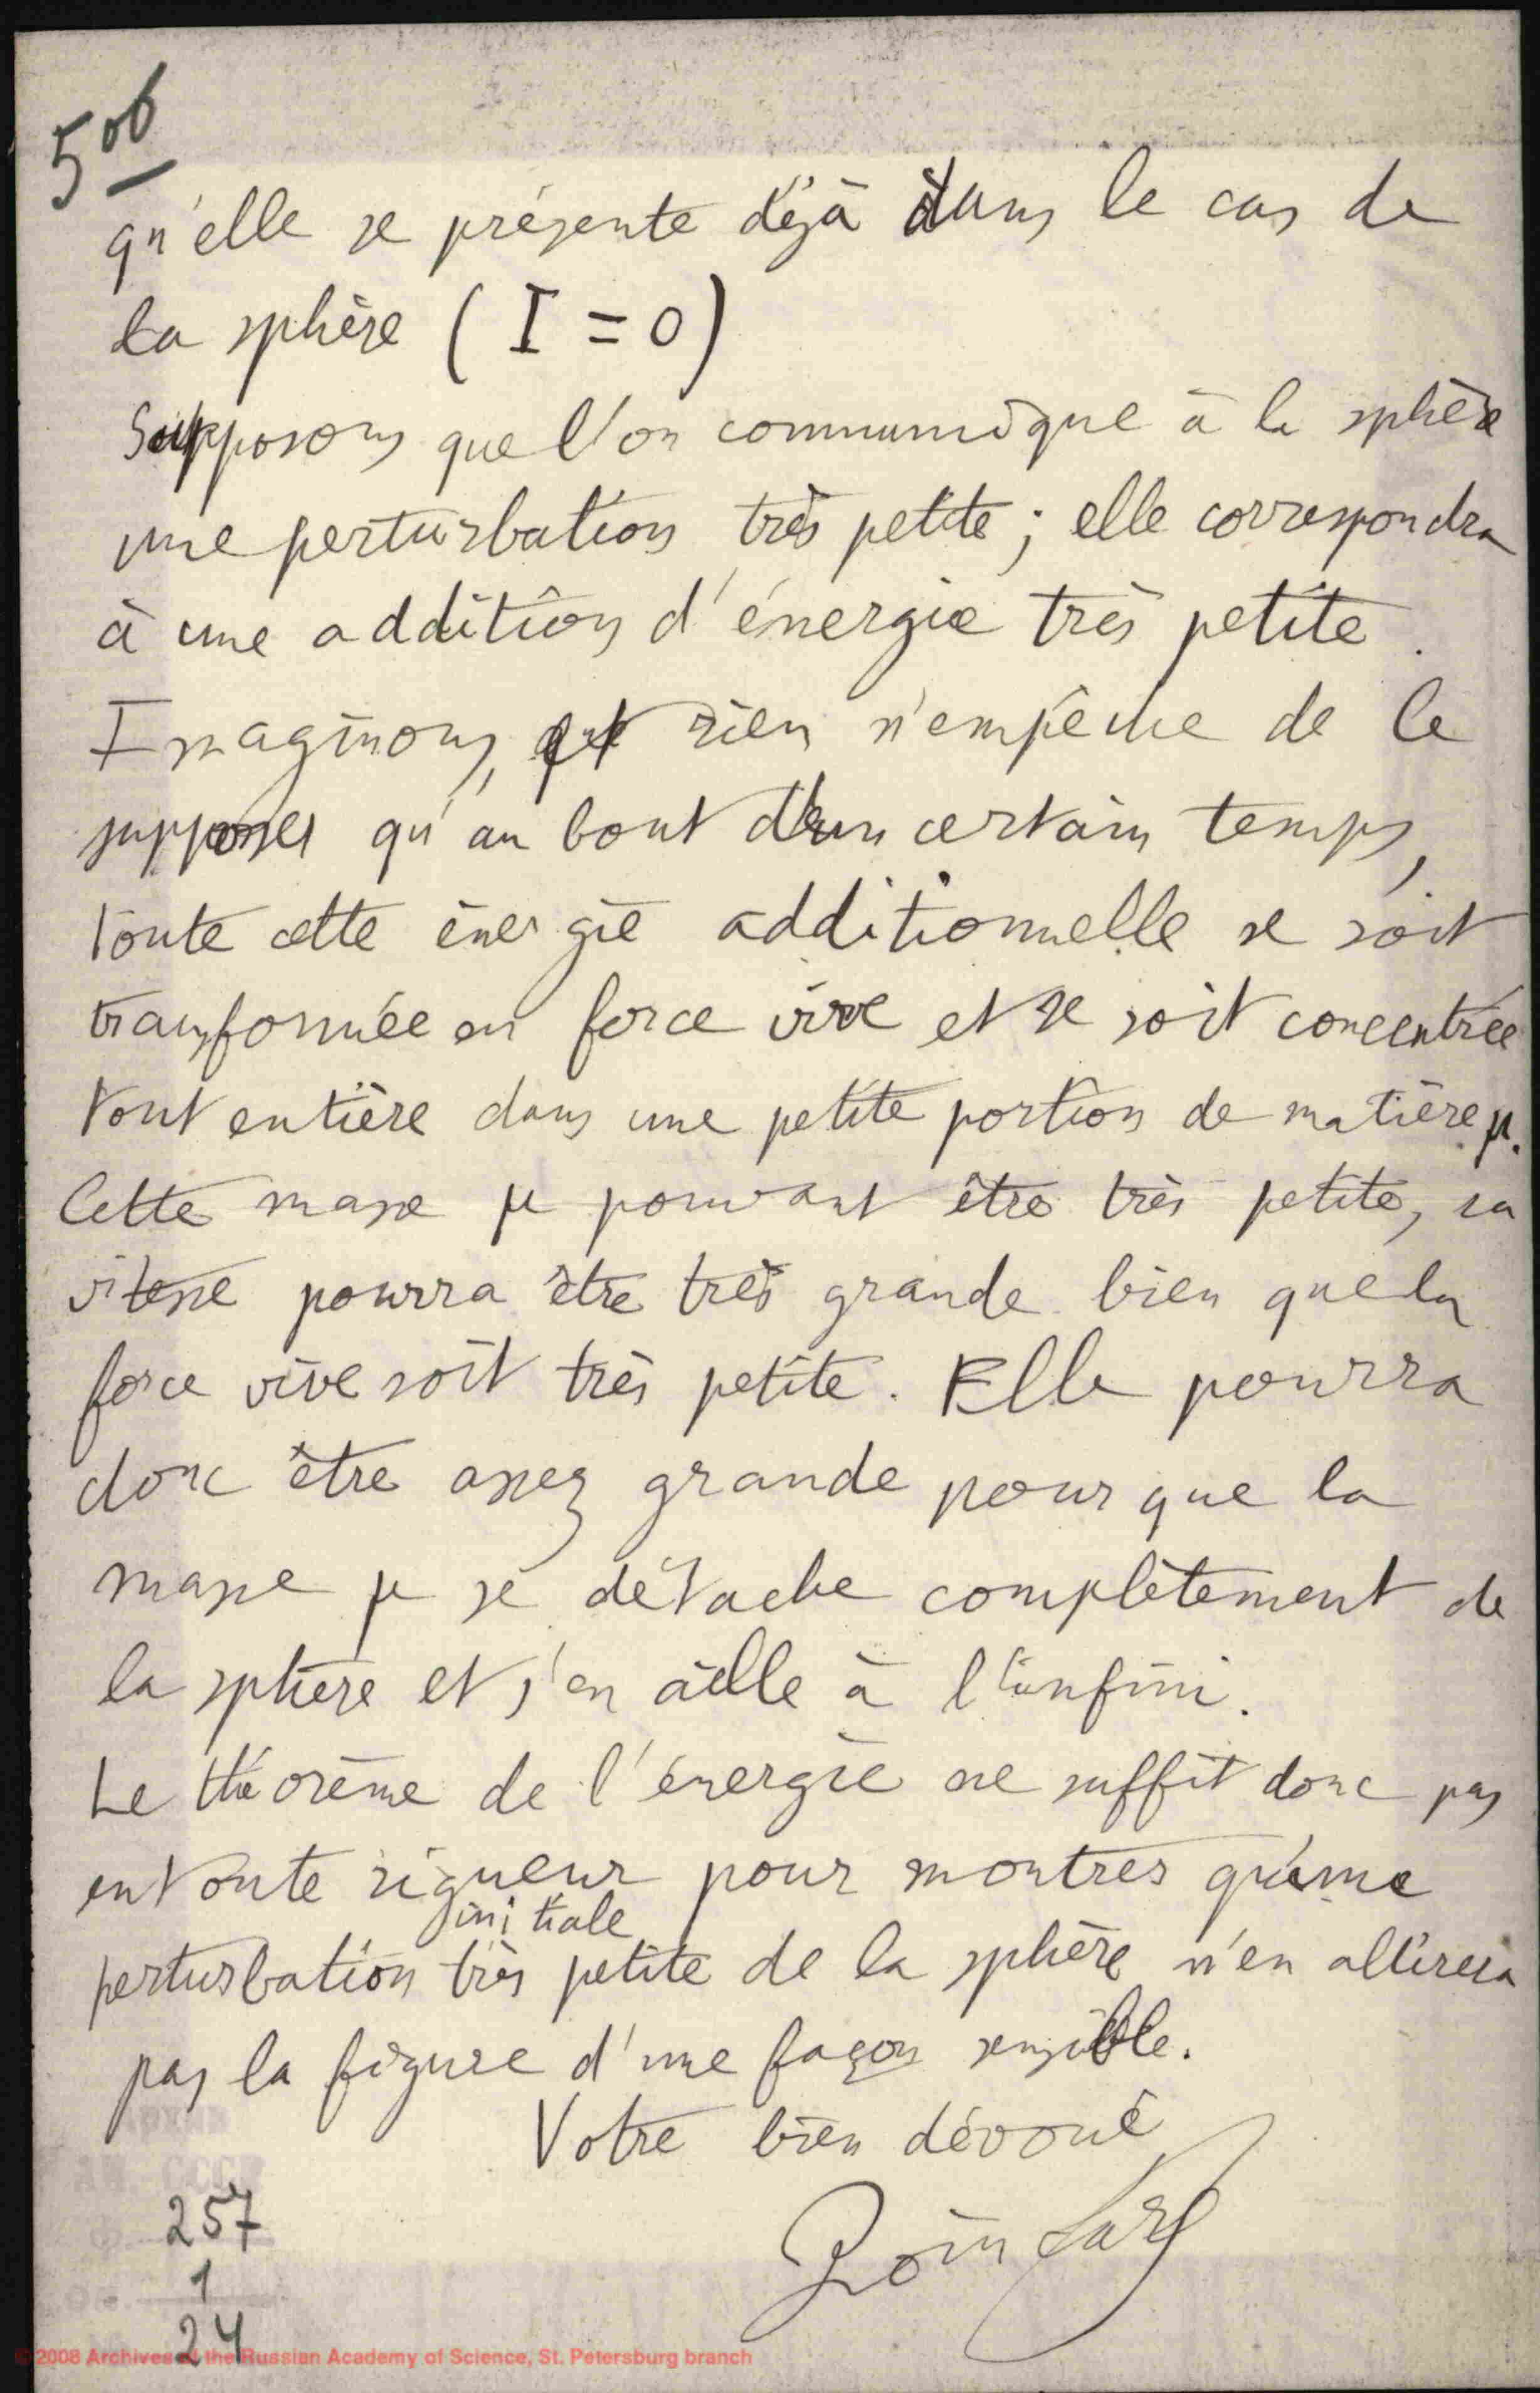 5 об
qu'elle se présente déjà dans le cas de
la sphère (I = 0)
Supposons que l'on communique à la sphère
une perturbation très petite ; elle correspondra
à une addition d'énergie très petite.
Imaginons, et rien n'empêche de le
supposer qu'au bout d'un certain temps,
toute cette énergie additionnelle se soit
transformée en force vive et se soit concentrée
tout entière dans une petite portion de matière μ.
Cette masse μ pouvant être très petite, sa
vitesse pourra être très grande bien que la
force vive soit très petite. Elle pourra
donc être assez grande pour que la
masse μ se détache complètement de
la sphère et s'en aille à l'infini.
Le théorème de l'énergie ne suffit donc pas
en toute rigueur pour montrer qu'une
initiale
perturbation très petite de la sphère n'en altèrera
pas la figure d'une façon sensible.
Votre bien dévoué
Poincaré
257
1
24
© 2008 Archives of the Russian Academy of Science, St. Petersburg branch